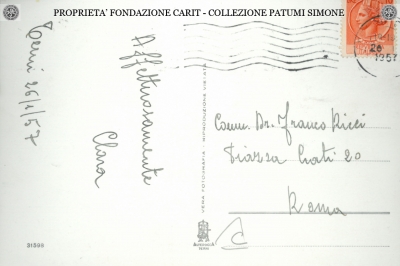 PROPRIETA' FONDAZIONE CARIT - COLLEZIONE PATUMI SIMONE
Terni 26/1/57
Affettuosamente
Clara
VERA FOTOGRAFIA - RIPRODUZIONE VIETATA
26
1957
Comm. Dr. Franco Ricci
Piazza Prati 20
Roma
31599